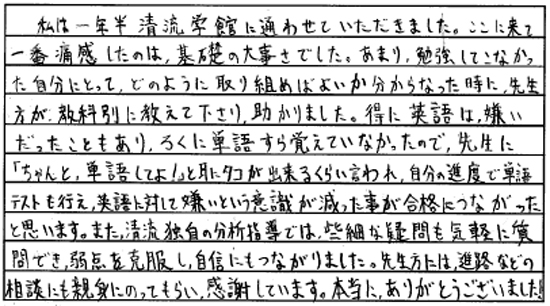 私は一年半清流学館に通わせていただきました。ここに来て
一番痛感したのは,基礎の大事さでした。あまり,勉強していなかっ
た自分にとって,どのように取り組めばよいか分からなった時に,先生
方が,教科別に教えて下さり,助かりました。得に英語は,嫌い
だったこともあり,ろくに単語すら覚えていなかったので,先生に
「ちゃんと,単語してよ!」と耳にタコが出来るくらい言われ,自分の進度で単語
テストも行え,英語に対して嫌いという意識が減った事が合格につながった
と思います。また,清流独自の分析指導では,些細な疑問も気軽に質
問でき,弱点を克服し,自信にもつながりました。先生方には,進路などの
相談にも親身にのってもらい,感謝しています。本当に,ありがとうございました